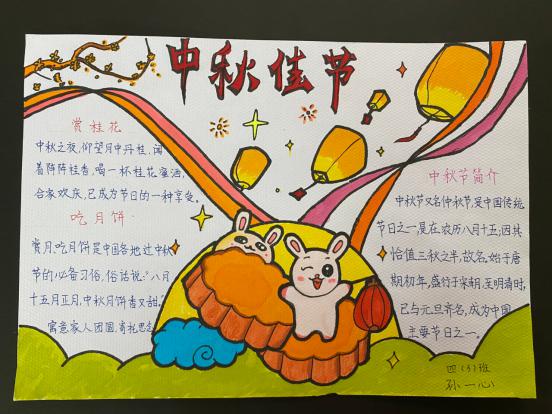 中秋佳节
赏桂花
中秋之夜,仰望月中丹桂,闻
着阵阵桂香,喝一杯桂花蜜酒,
合家欢庆,已成为节日的一种享受。
吃月饼
赏月、吃月饼是中国各地过中秋
节的必备习俗,俗话说:“八月
十五月正月,中秋月饼香又甜”
寓意家人团圆,寄托思念
中秋节简介
中秋节又名仲秋节,是中国传统
节日之一,是在农历八月十五;因其
恰值三秋之半,故名,始于唐
期初年,盛行于宋朝,至明清时,
已与元旦齐名,成为中国
主要节日之一。
四(3)班
孙一心